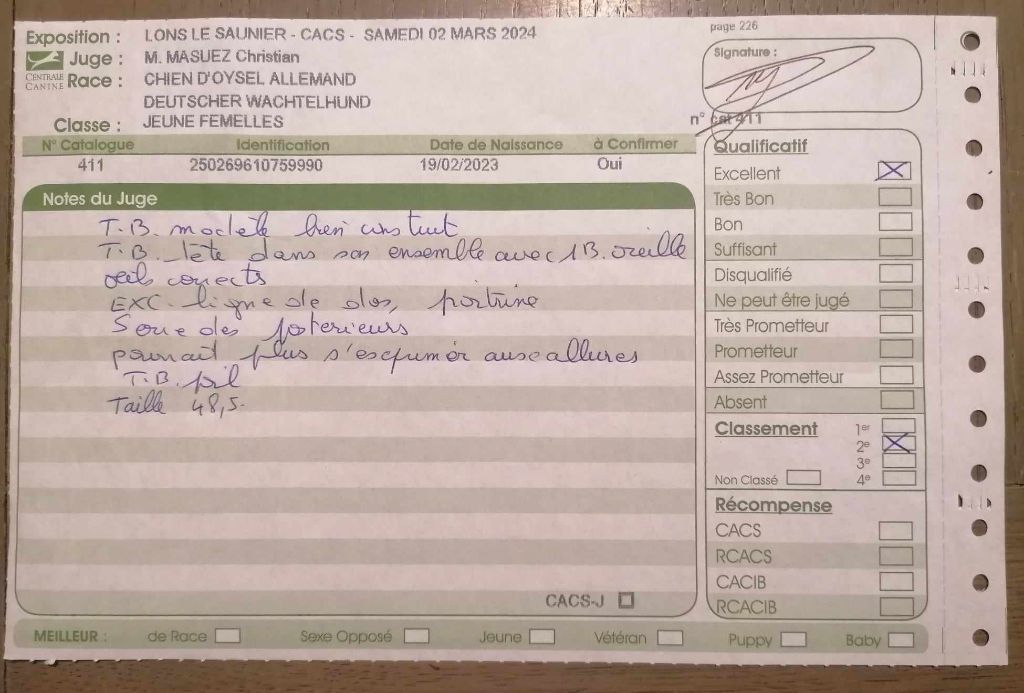 Exposition : LONS LE SAUNIER - CACS - SAMEDI 02 MARS 2024
CENTRALE CANINE
Juge : M. MASUEZ Christian
Race : CHIEN D'OYSEL ALLEMAND
DEUTSCHER WACHTELHUND
Classe : JEUNE FEMELLES
page 226
Signature :
n° cat 411
N° Catalogue Identification Date de Naissance à Confirmer
411 250269610759990 19/02/2023 Oui
Notes du Juge
T.B. modèle bien construit
T.B. tête dans son ensemble avec 1 B. oreille
oeils corrects
EXC. ligne de dos, poitrine
Serre des posterieurs
pourrait plus s'exprimer aux allures
T.B. poil
Taille 48,5.
CACS-J
Qualificatif
Excellent
Très Bon
Bon
Suffisant
Disqualifié
Ne peut être jugé
Très Prometteur
Prometteur
Assez Prometteur
Absent
Classement 1er
2e
3e
Non Classé 4e
Récompense
CACS
RCACS
CACIB
RCACIB
MEILLEUR : de Race Sexe Opposé Jeune Vétéran Puppy Baby